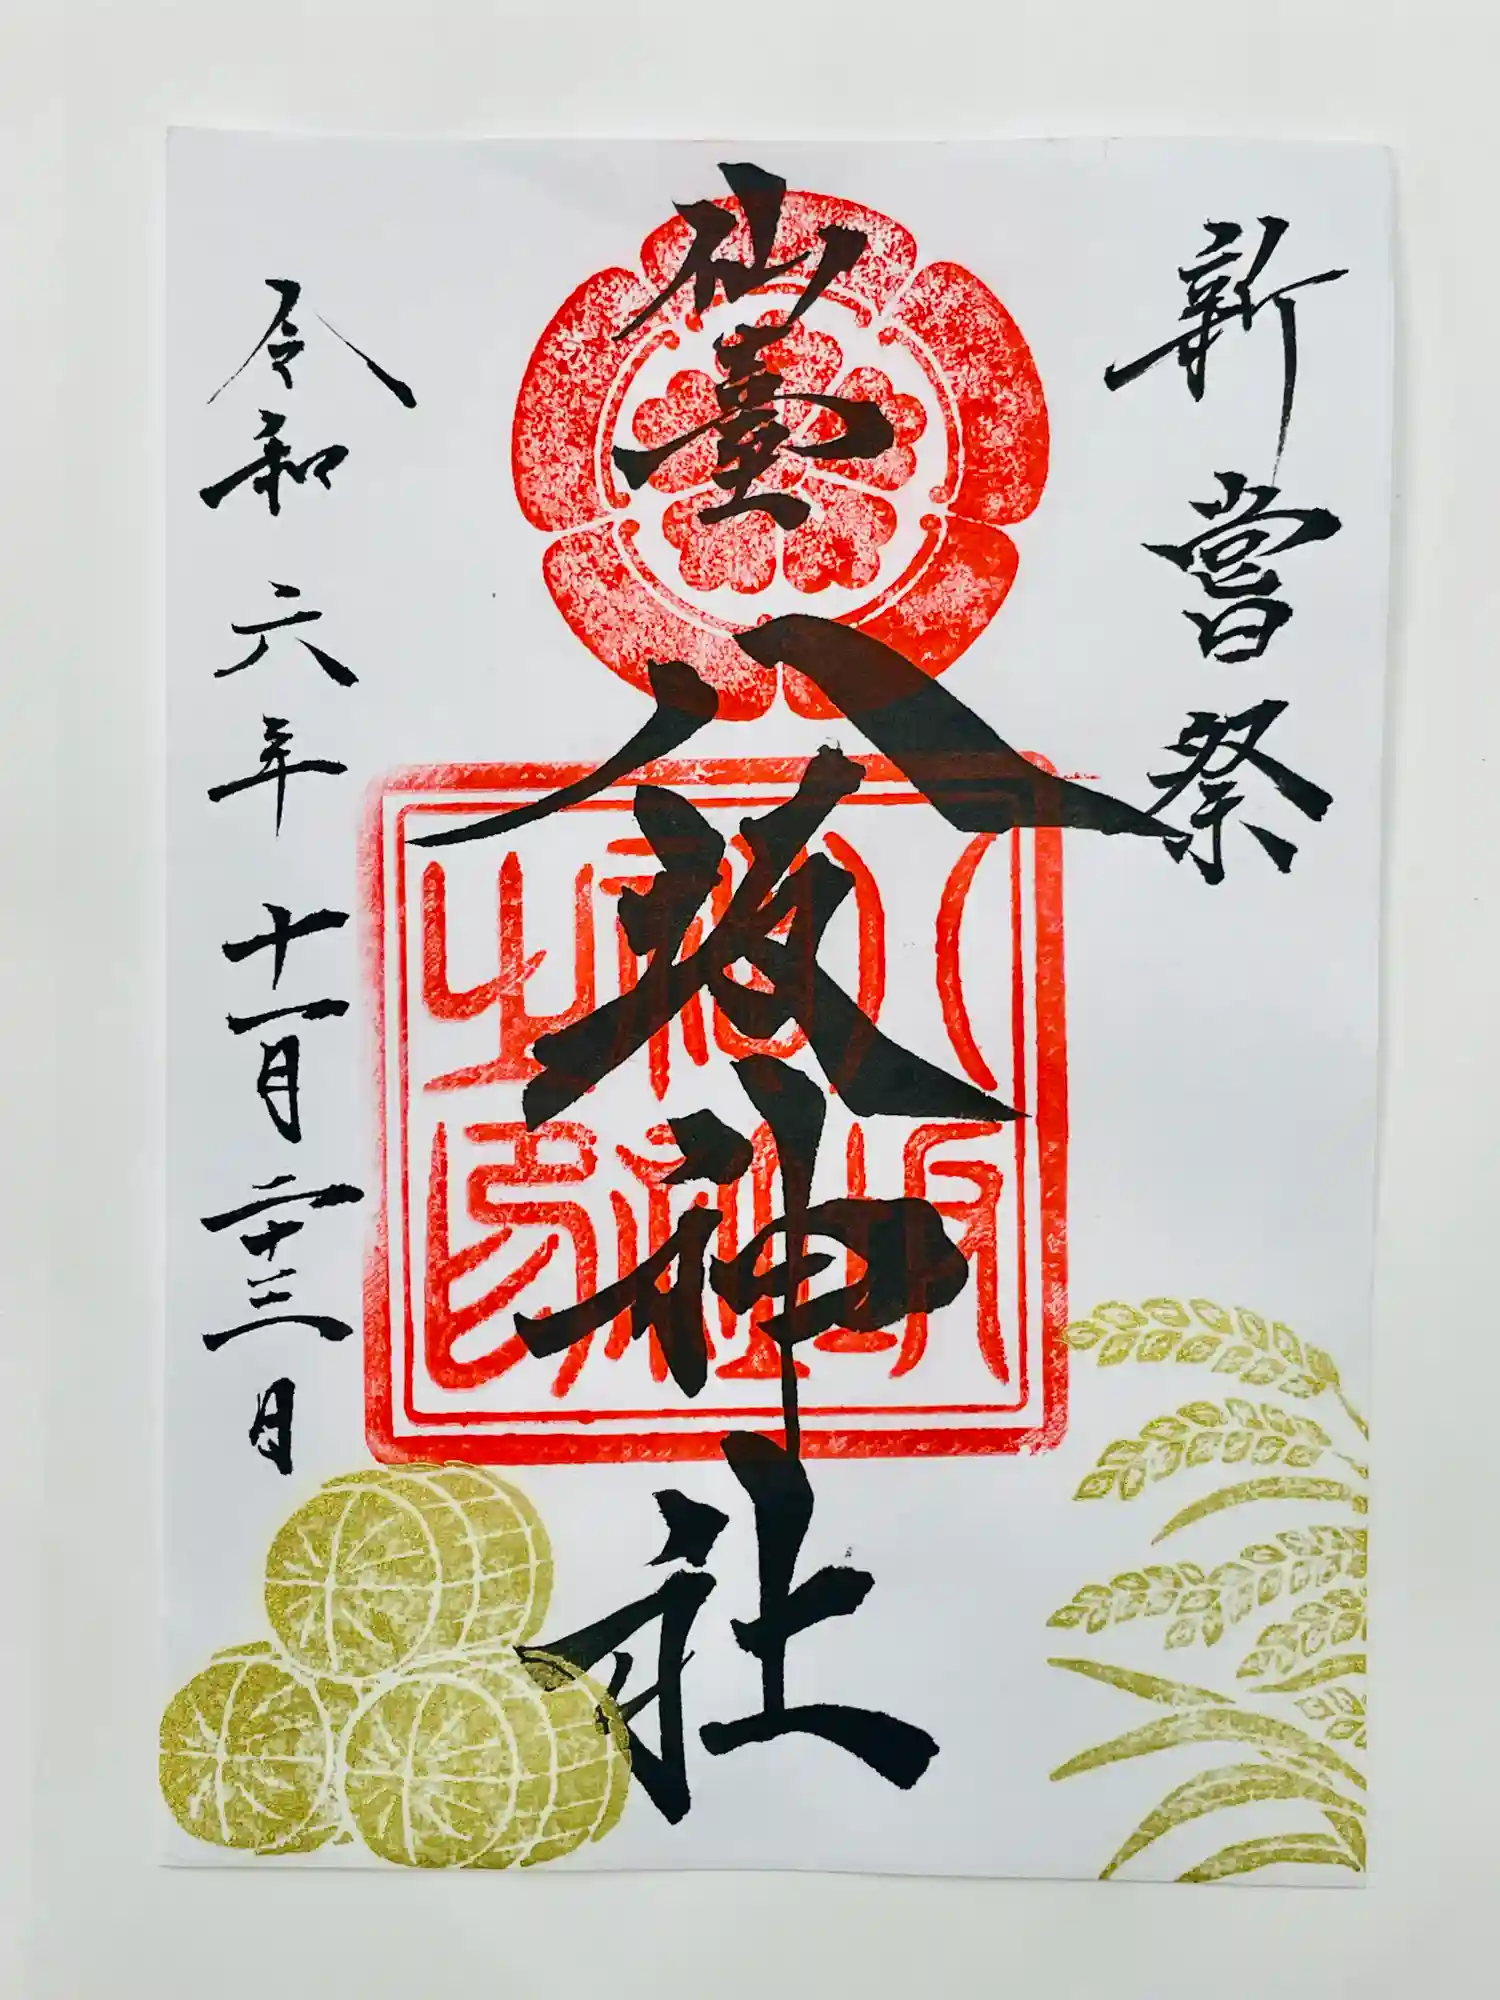 新嘗祭
仙臺
八坂神社
八坂神社之印
令和六年十一月二十三日